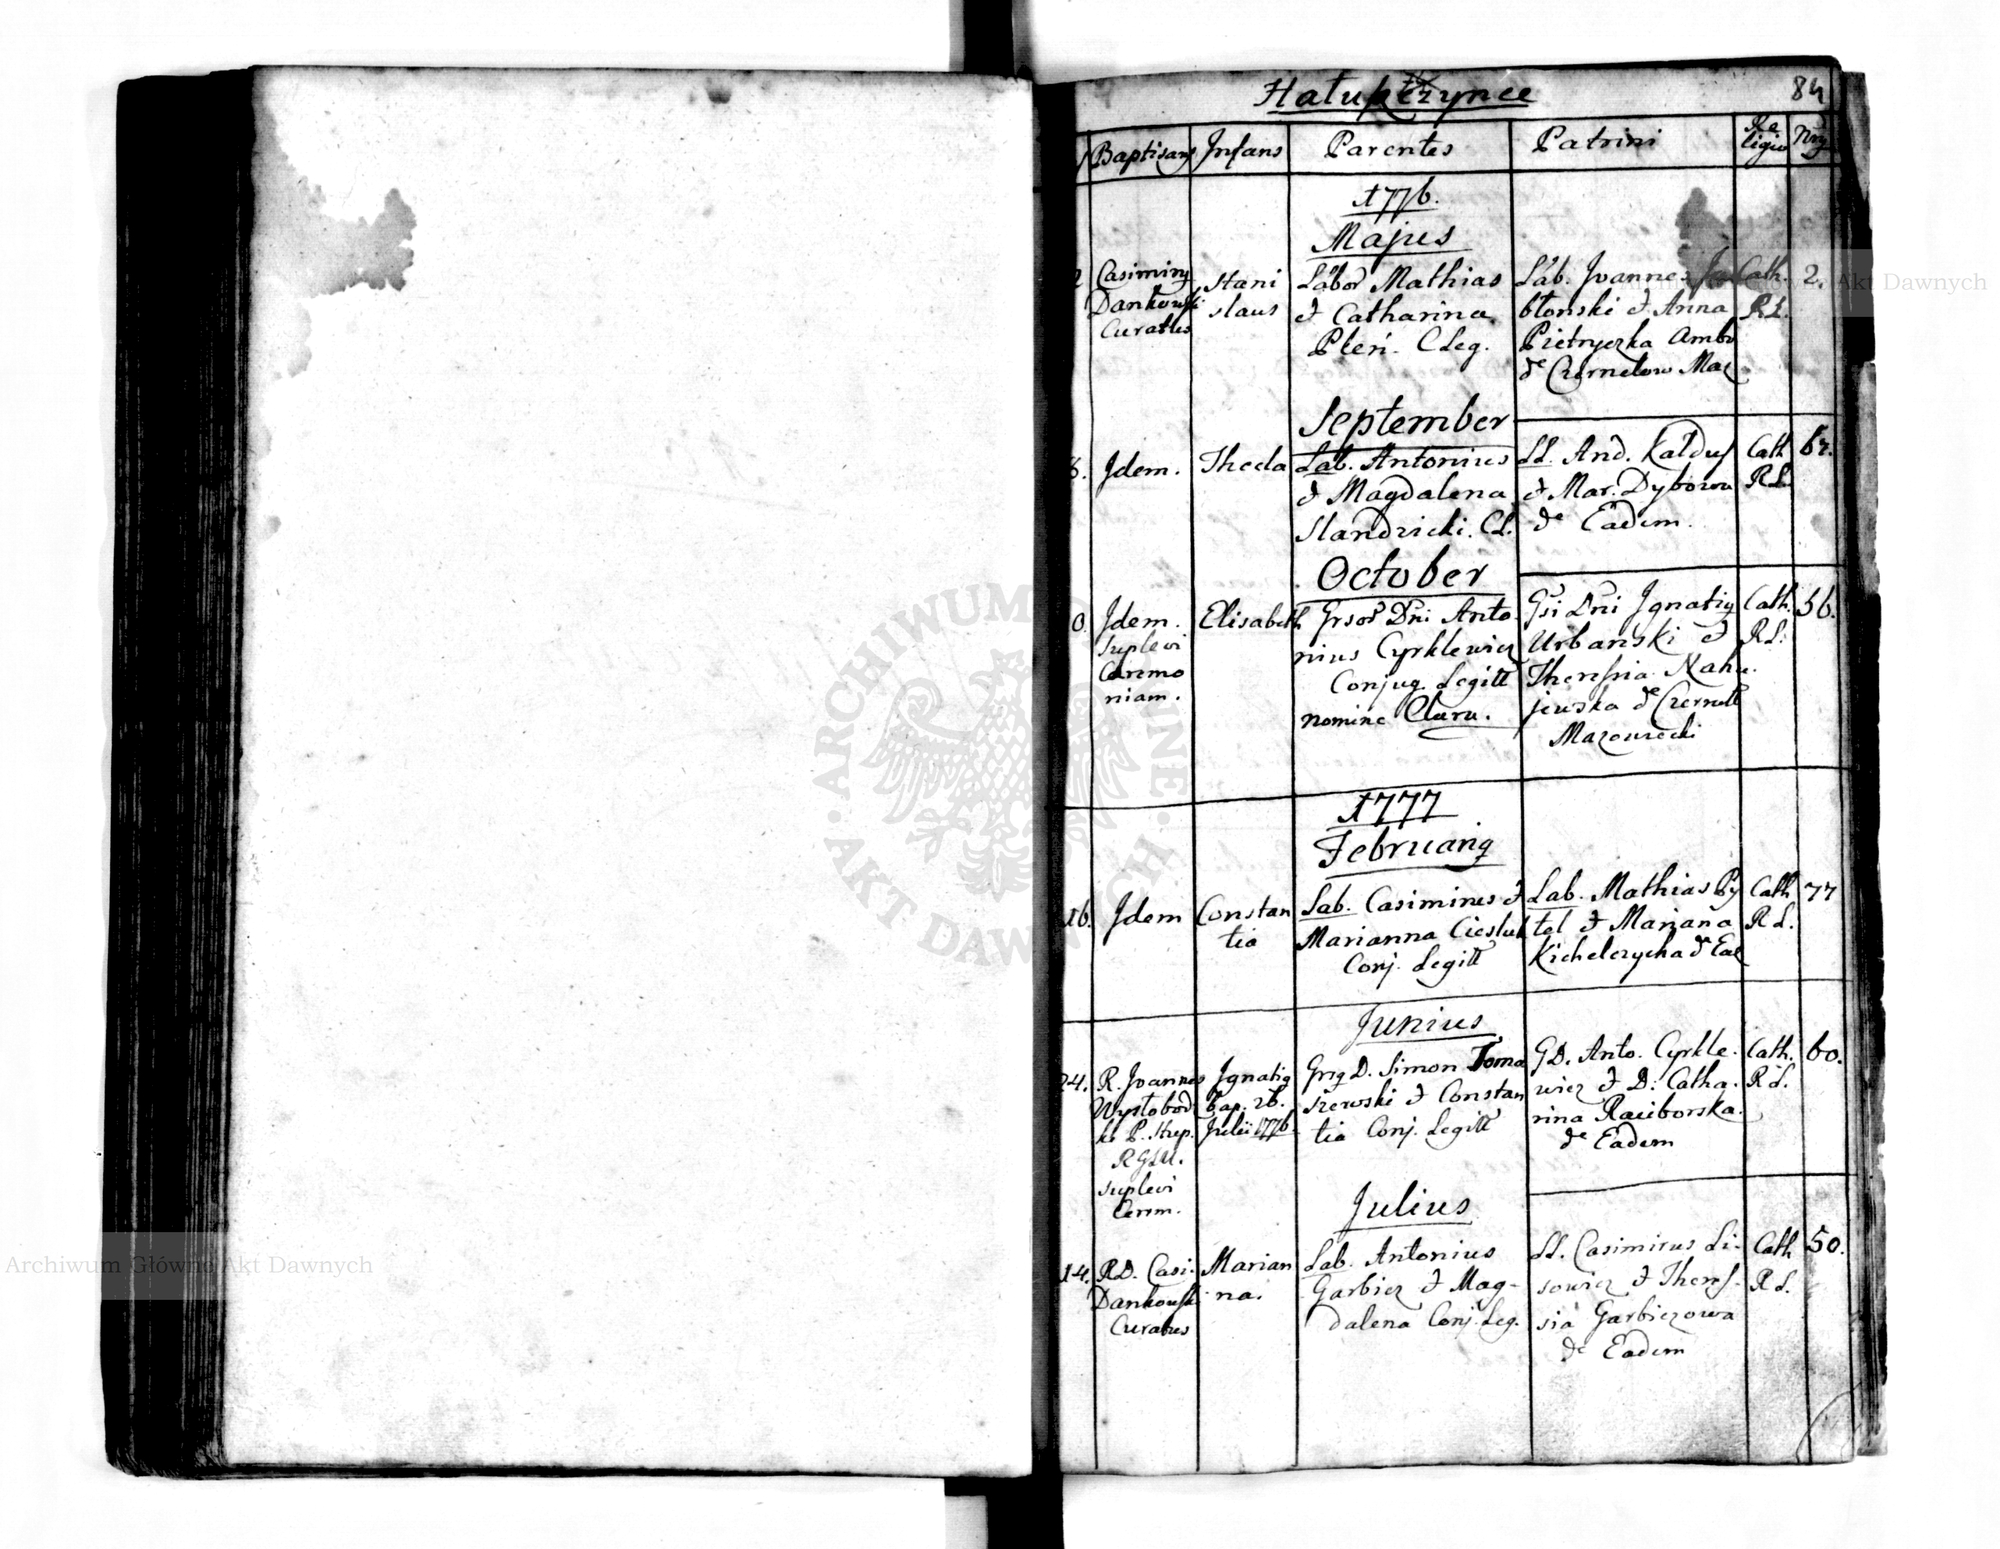 Hałupczynce
84
Baptisans Infans Parentes Patrini Religio Nrus
1776.
Majus
Casimirus Dankowski Curatus
Stanislaus
Labor Mathias
& Catharina
Pleń. C Leg.
Lab. Joannes Ja
błonski & Anna
Pietryczka Ambo
de Czernelow Maz
Cath.
R L.
2.
September
8.
Idem.
Thecla
Lab. Antonius
& Magdalena
Slandzicki. CL.
LL. And. Kałdus
& Mar. Dybowa
de Eadem.
Cath
RL.
62.
October
0.
Idem.
Suplevi
Cærimo
niam.
Elisabeth
Grsor Dni Anto
nius Cyrklewicz
Conjug. Legitt
nomine Clara.
Gsi Dni Ignatius
Urbanski &
Theressia Nahu
jewska de Czernell
Mazowiecki
Cath.
R L.
56.
1777
Februarius
16.
Idem
Constan
tia
Lab. Casimirus &
Marianna Ciesluk
Conj. Legitt
Lab. Mathias Py
tel & Mariana
Kichelczycha de Ead
Cath
R L.
77
Junius
24.
R. Joannes
Wysłobod
ki P. Step.
RGLU.
suplevi
Cerim.
Ignatius
bap. 26.
Julii 1776.
Grsq D. Simon Toma
szewski & Constan
tia Conj. Legitt
GD. Anto. Cyrkle
wicz & D. Catha
rina Raciborska
de Eadem
Cath.
R L.
60.
Julius
14.
RD. Casi.
Dankowski
Curatus
Marian
na.
Lab. Antonius
Garbicz & Mag-
dalena Conj. Leg.
LL. Casimirus Li-
sowicz & Theres-
sia Garbiczowa
de Eadem
Cath
R L.
50.
ARCHIWUM GŁÓWNE
AKT DAWNYCH
Archiwum Główne Akt Dawnych
Archiwum Główne Akt Dawnych